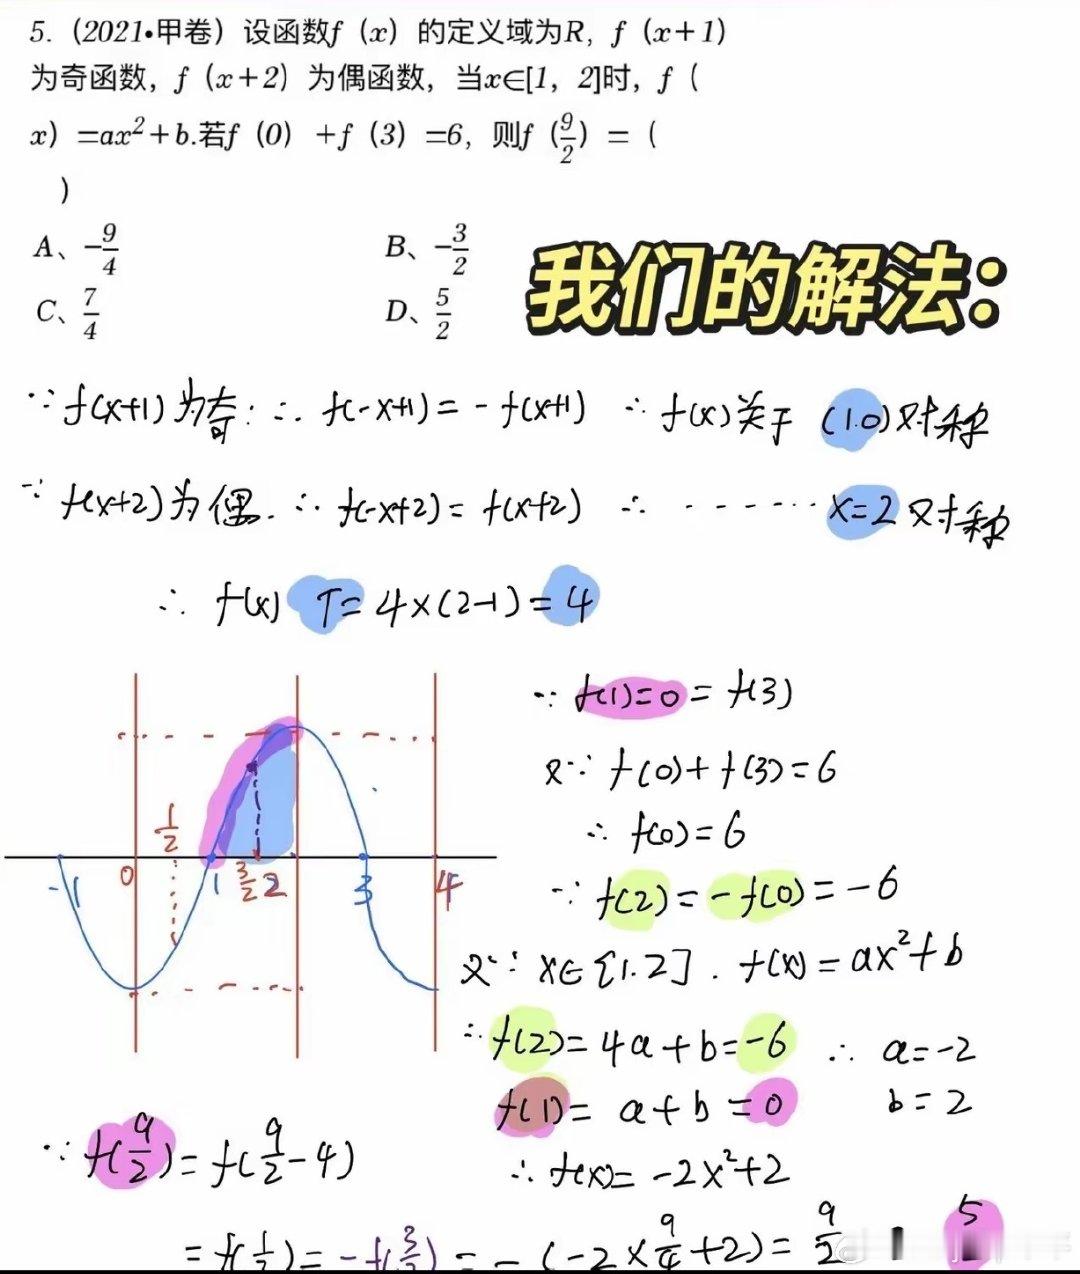 5.（2021•甲卷）设函数f（x）的定义域为R，f（x+1）
为奇函数，f（x+2）为偶函数，当x∈[1，2]时，f（
x）=ax²+b.若f（0）+f（3）=6，则f（9/2）=（
）
A、-9/4 B、-3/2
C、7/4 D、5/2
我们的解法：
∵ f(x+1)为奇. ∴ f(-x+1) = -f(x+1) ∴ f(x)关于 (1.0)对称
∵ f(x+2)为偶. ∴ f(-x+2) = f(x+2) ∴ ······· x=2对称
∴ f(x) T = 4×(2-1) = 4
∵ f(1)=0 = f(3)
又∵ f(0)+f(3)=6
∴ f(0)=6
∵ f(2) = -f(0) = -6
又∵ x∈[1.2]. f(x) = ax²+b
∴ f(2) = 4a+b = -6 ∴ a=-2
f(1) = a+b = 0 b=2
∴ f(x) = -2x²+2
1/2
-1 0 1 3/2 2 3 4
∵ f(9/2) = f(9/2-4)
= f(1/2) = -f(3/2) = -(-2×9/4+2) = 9/2 5